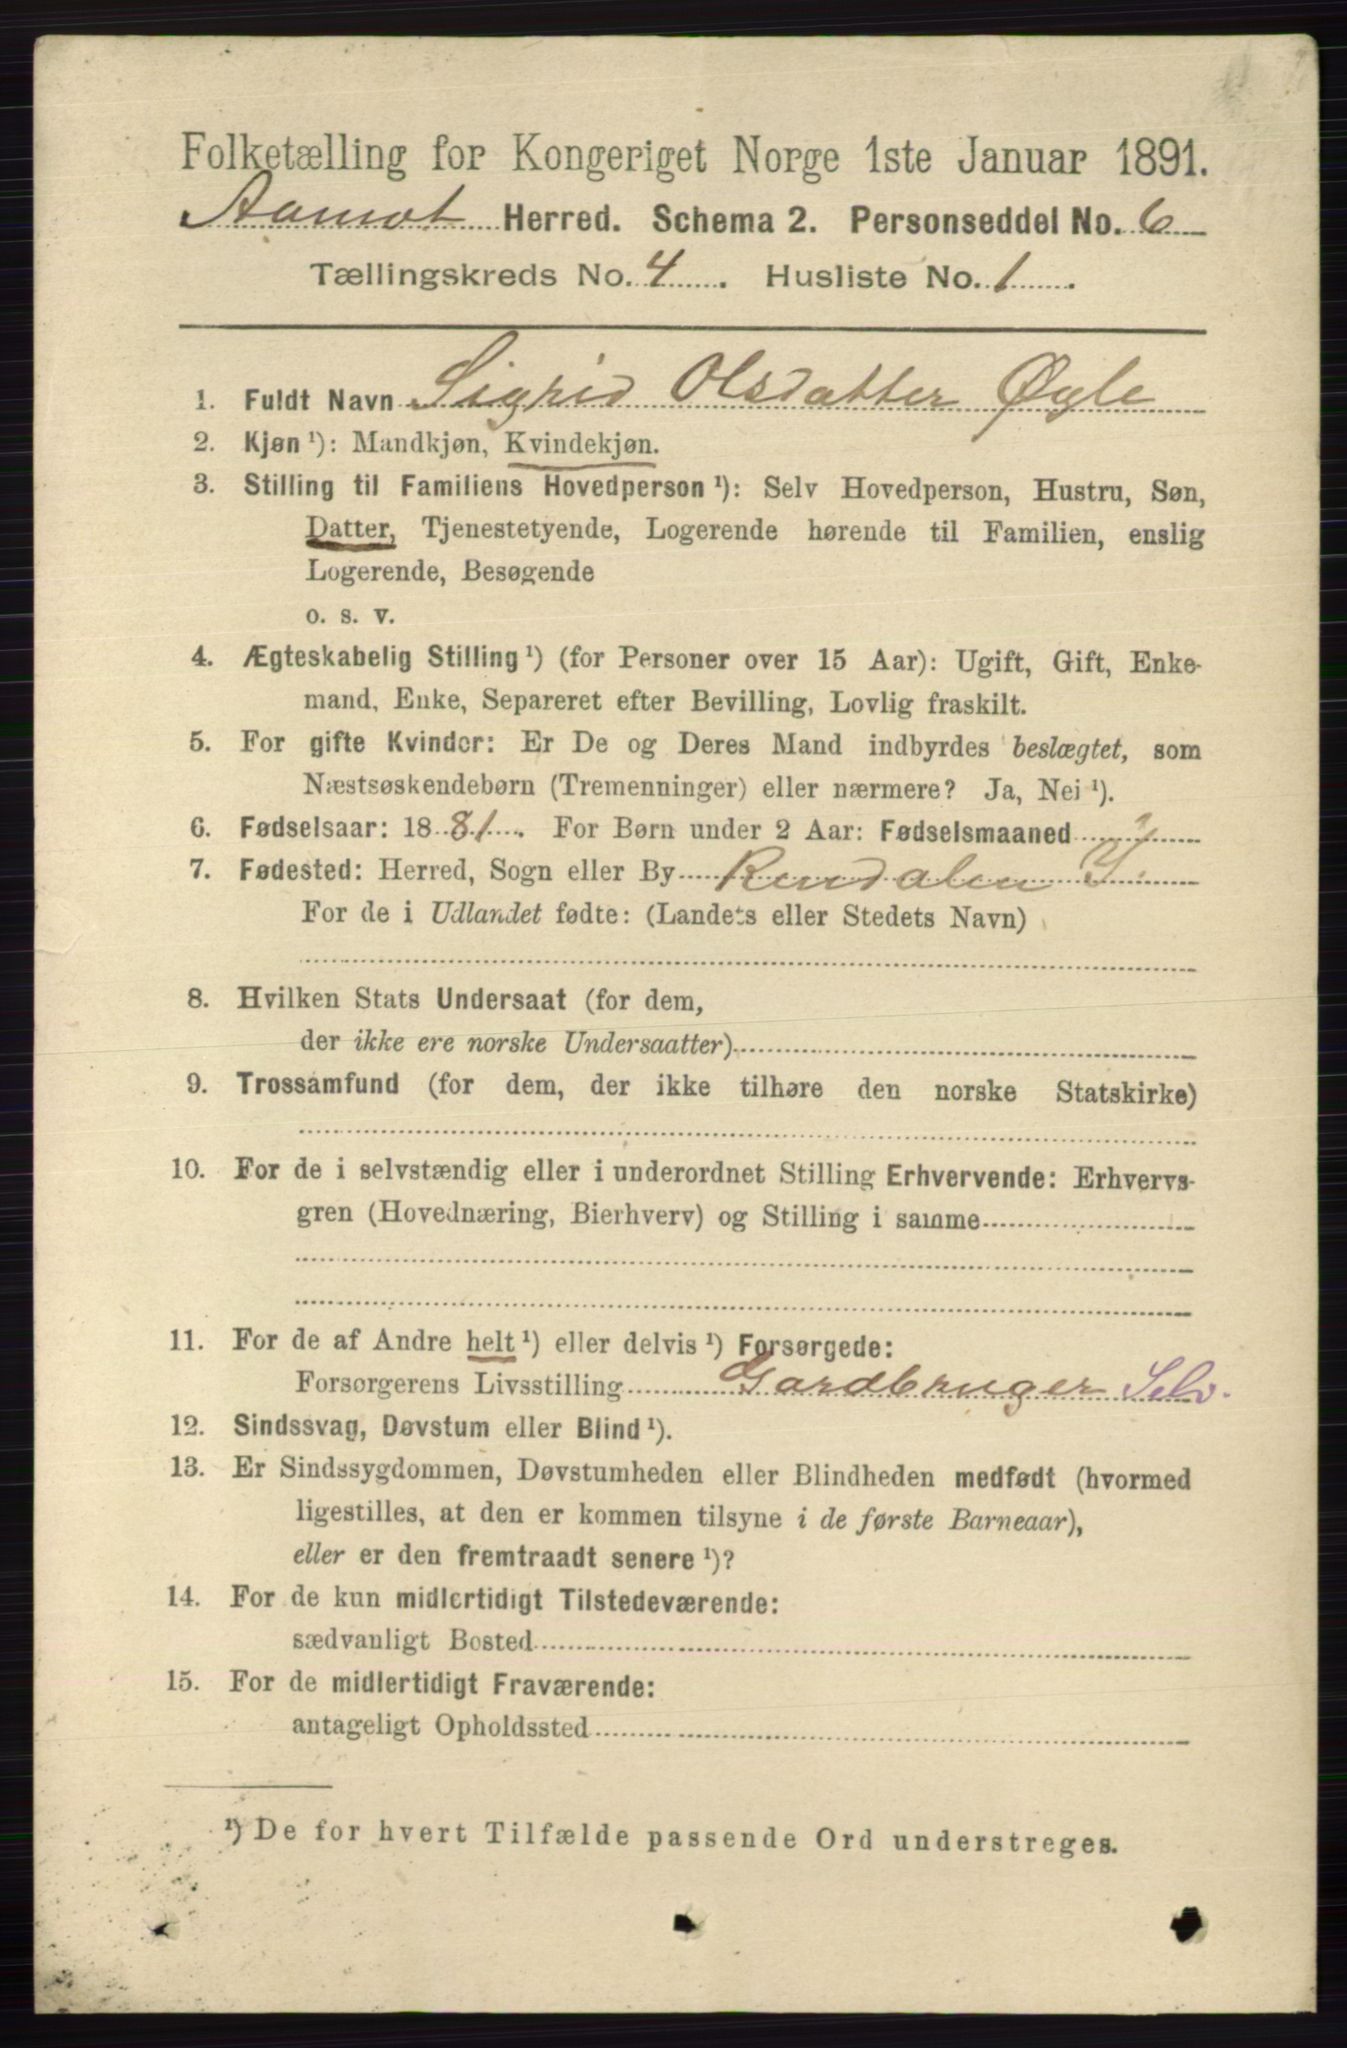 Folketælling for Kongeriget Norge 1ste Januar 1891.
Aamot Herred. Schema 2. Personseddel No. 6
Tællingskreds No. 4. Husliste No. 1.
1. Fuldt Navn Sigrid Olsdatter Øgle
2. Kjøn ¹): Mandkjøn, Kvindekjøn.
3. Stilling til Familiens Hovedperson ¹): Selv Hovedperson, Hustru, Søn,
Datter, Tjenestetyende, Logerende hørende til Familien, enslig
Logerende, Besøgende
o. s. v.
4. Ægteskabelig Stilling ¹) (for Personer over 15 Aar): Ugift, Gift, Enke-
mand, Enke, Separeret efter Bevilling, Lovlig fraskilt.
5. For gifte Kvinder: Er De og Deres Mand indbyrdes beslægtet, som
Næstsøskendebørn (Tremenninger) eller nærmere? Ja, Nei ¹).
6. Fødselsaar: 1881. For Børn under 2 Aar: Fødselsmaaned
7. Fødested: Herred, Sogn eller By Rendalen Y.
For de i Udlandet fødte: (Landets eller Stedets Navn)
8. Hvilken Stats Undersaat (for dem,
der ikke ere norske Undersaatter)
9. Trossamfund (for dem, der ikke tilhøre den norske Statskirke)
10. For de i selvstændig eller i underordnet Stilling Erhvervende: Erhvervs-
gren (Hovednæring, Bierhverv) og Stilling i samme
11. For de af Andre helt ¹) eller delvis ¹) Forsørgede:
Forsørgerens Livsstilling Gardbruger Selv.
12. Sindssvag, Døvstum eller Blind ¹).
13. Er Sindssygdommen, Døvstumheden eller Blindheden medfødt (hvormed
ligestilles, at den er kommen tilsyne i de første Barneaar),
eller er den fremtraadt senere ¹)?
14. For de kun midlertidigt Tilstedeværende:
sædvanligt Bosted
15. For de midlertidigt Fraværende:
antageligt Opholdssted
¹) De for hvert Tilfælde passende Ord understreges.